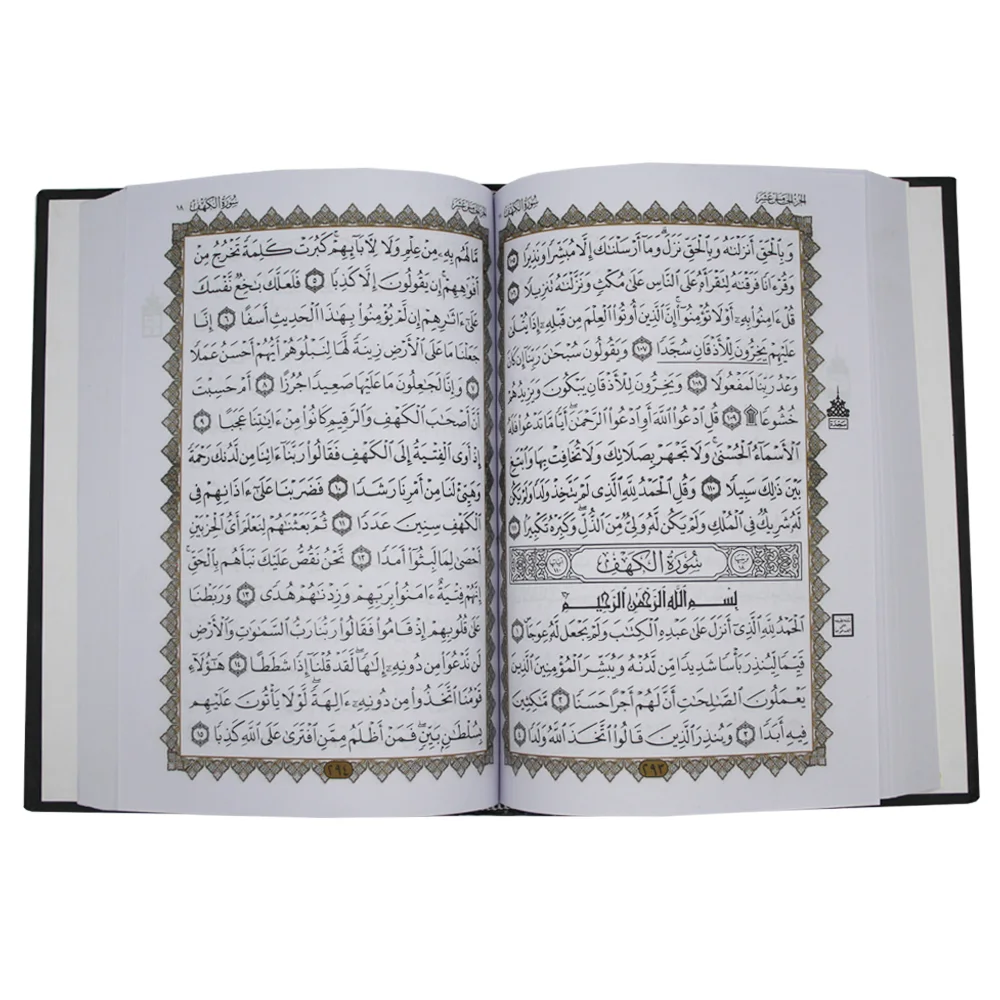 سُورَةُ الكَهْفِ
الجُزْءُ الخَامِسَ عَشَرَ
وَبِٱلْحَقِّ أَنزَلْنَٰهُ وَبِٱلْحَقِّ نَزَلَ ۗ وَمَآ أَرْسَلْنَٰكَ إِلَّا مُبَشِّرًا وَنَذِيرًا ١٠٥
وَقُرْءَانًا فَرَقْنَٰهُ لِتَقْرَأَهُۥ عَلَى ٱلنَّاسِ عَلَىٰ مُكْثٍ وَنَزَّلْنَٰهُ تَنزِيلًا ١٠٦
قُلْ ءَامِنُوا۟ بِهِۦٓ أَوْ لَا تُؤْمِنُوٓا۟ ۚ إِنَّ ٱلَّذِينَ أُوتُوا۟ ٱلْعِلْمَ مِن قَبْلِهِۦٓ إِذَا يُتْلَىٰ
عَلَيْهِمْ يَخِرُّونَ لِلْأَذْقَانِ سُجَّدًا ١٠٧ وَيَقُولُونَ سُبْحَٰنَ رَبِّنَآ إِن كَانَ
وَعْدُ رَبِّنَا لَمَفْعُولًا ١٠٨ وَيَخِرُّونَ لِلْأَذْقَانِ يَبْكُونَ وَيَزِيدُهُمْ
خُشُوعًا ۩ ١٠٩ قُلِ ٱدْعُوا۟ ٱللَّهَ أَوِ ٱدْعُوا۟ ٱلرَّحْمَٰنَ ۖ أَيًّا مَّا تَدْعُوا۟ فَلَهُ
ٱلْأَسْمَآءُ ٱلْحُسْنَىٰ ۚ وَلَا تَجْهَرْ بِصَلَاتِكَ وَلَا تُخَافِتْ بِهَا وَٱبْتَغِ
بَيْنَ ذَٰلِكَ سَبِيلًا ١١٠ وَقُلِ ٱلْحَمْدُ لِلَّهِ ٱلَّذِى لَمْ يَتَّخِذْ وَلَدًا وَلَمْ يَكُن
لَّهُۥ شَرِيكٌ فِى ٱلْمُلْكِ وَلَمْ يَكُن لَّهُۥ وَلِىٌّ مِّنَ ٱلذُّلِّ ۖ وَكَبِّرْهُ تَكْبِيرًۢا ١١١
سُورَةُ الكَهْفِ
بِسْمِ ٱللَّهِ ٱلرَّحْمَٰنِ ٱلرَّحِيمِ
ٱلْحَمْدُ لِلَّهِ ٱلَّذِىٓ أَنزَلَ عَلَىٰ عَبْدِهِ ٱلْكِتَٰبَ وَلَمْ يَجْعَل لَّهُۥ عِوَجَا ١
قَيِّمًا لِّيُنذِرَ بَأْسًا شَدِيدًا مِّن لَّدُنْهُ وَيُبَشِّرَ ٱلْمُؤْمِنِينَ ٱلَّذِينَ
يَعْمَلُونَ ٱلصَّٰلِحَٰتِ أَنَّ لَهُمْ أَجْرًا حَسَنًا ٢ مَّٰكِثِينَ
فِيهِ أَبَدًا ٣ وَيُنذِرَ ٱلَّذِينَ قَالُوا۟ ٱتَّخَذَ ٱللَّهُ وَلَدًا ٤
٢٩٣
سُورَةُ الكَهْفِ ١٨
الجُزْءُ الخَامِسَ عَشَرَ
مَّا لَهُم بِهِۦ مِنْ عِلْمٍ وَلَا لِءَابَآئِهِمْ ۚ كَبُرَتْ كَلِمَةً تَخْرُجُ مِنْ
أَفْوَٰهِهِمْ ۚ إِن يَقُولُونَ إِلَّا كَذِبًا ٥ فَلَعَلَّكَ بَٰخِعٌ نَّفْسَكَ
عَلَىٰٓ ءَاثَٰرِهِمْ إِن لَّمْ يُؤْمِنُوا۟ بِهَٰذَا ٱلْحَدِيثِ أَسَفًا ٦ إِنَّا
جَعَلْنَا مَا عَلَى ٱلْأَرْضِ زِينَةً لَّهَا لِنَبْلُوَهُمْ أَيُّهُمْ أَحْسَنُ عَمَلًا
٧ وَإِنَّا لَجَٰعِلُونَ مَا عَلَيْهَا صَعِيدًا جُرُزًا ٨ أَمْ حَسِبْتَ
أَنَّ أَصْحَٰبَ ٱلْكَهْفِ وَٱلرَّقِيمِ كَانُوا۟ مِنْ ءَايَٰتِنَا عَجَبًا ٩
إِذْ أَوَى ٱلْفِتْيَةُ إِلَى ٱلْكَهْفِ فَقَالُوا۟ رَبَّنَآ ءَاتِنَا مِن لَّدُنكَ رَحْمَةً
وَهَيِّئْ لَنَا مِنْ أَمْرِنَا رَشَدًا ١٠ فَضَرَبْنَا عَلَىٰٓ ءَاذَانِهِمْ فِى
ٱلْكَهْفِ سِنِينَ عَدَدًا ١١ ثُمَّ بَعَثْنَٰهُمْ لِنَعْلَمَ أَىُّ ٱلْحِزْبَيْنِ
أَحْصَىٰ لِمَا لَبِثُوٓا۟ أَمَدًا ١٢ نَّحْنُ نَقُصُّ عَلَيْكَ نَبَأَهُم بِٱلْحَقِّ ۚ
إِنَّهُمْ فِتْيَةٌ ءَامَنُوا۟ بِرَبِّهِمْ وَزِدْنَٰهُمْ هُدًى ١٣ وَرَبَطْنَا
عَلَىٰ قُلُوبِهِمْ إِذْ قَامُوا۟ فَقَالُوا۟ رَبُّنَا رَبُّ ٱلسَّمَٰوَٰتِ وَٱلْأَرْضِ
لَن نَّدْعُوَا۟ مِن دُونِهِۦٓ إِلَٰهًا ۖ لَّقَدْ قُلْنَآ إِذًا شَطَطًا ١٤ هَٰٓؤُلَآءِ
قَوْمُنَا ٱتَّخَذُوا۟ مِن دُونِهِۦٓ ءَالِهَةً ۖ لَّوْلَا يَأْتُونَ عَلَيْهِم
بِسُلْطَٰنٍۭ بَيِّنٍ ۖ فَمَنْ أَظْلَمُ مِمَّنِ ٱفْتَرَىٰ عَلَى ٱللَّهِ كَذِبًا ١٥
٢٩٤